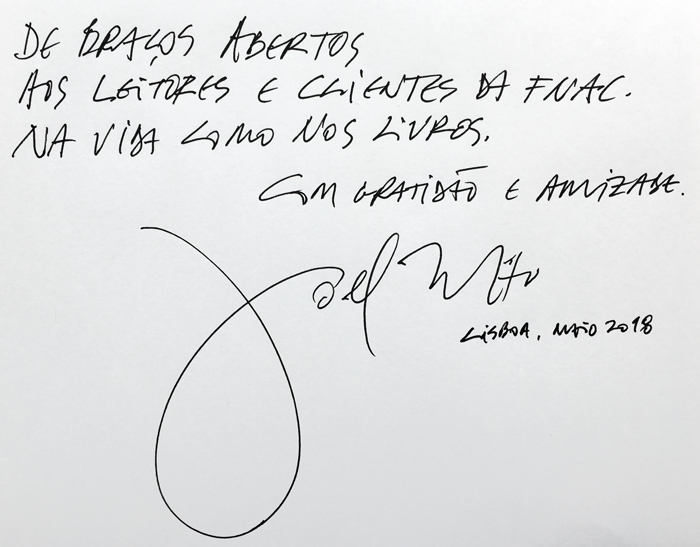 DE BRAÇOS ABERTOS
AOS LEITORES E CLIENTES DA FNAC.
NA VIDA COMO NOS LIVROS.
COM GRATIDÃO E AMIZADE.
Joel Neto
LISBOA, MAIO 2018